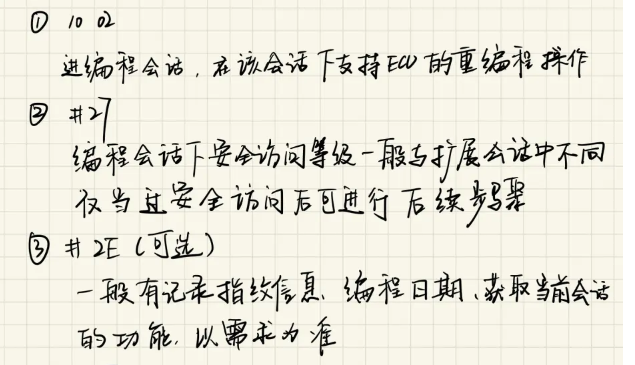 ① 10 02
进编程会话，在该会话下支持ECU的重编程操作
② #27
编程会话下安全访问等级一般与扩展会话中不同
仅当过安全访问后可进行后续步骤
③ #2E（可选）
一般有记录指纹信息、编程日期、获取当前会话
的功能，以需求为准